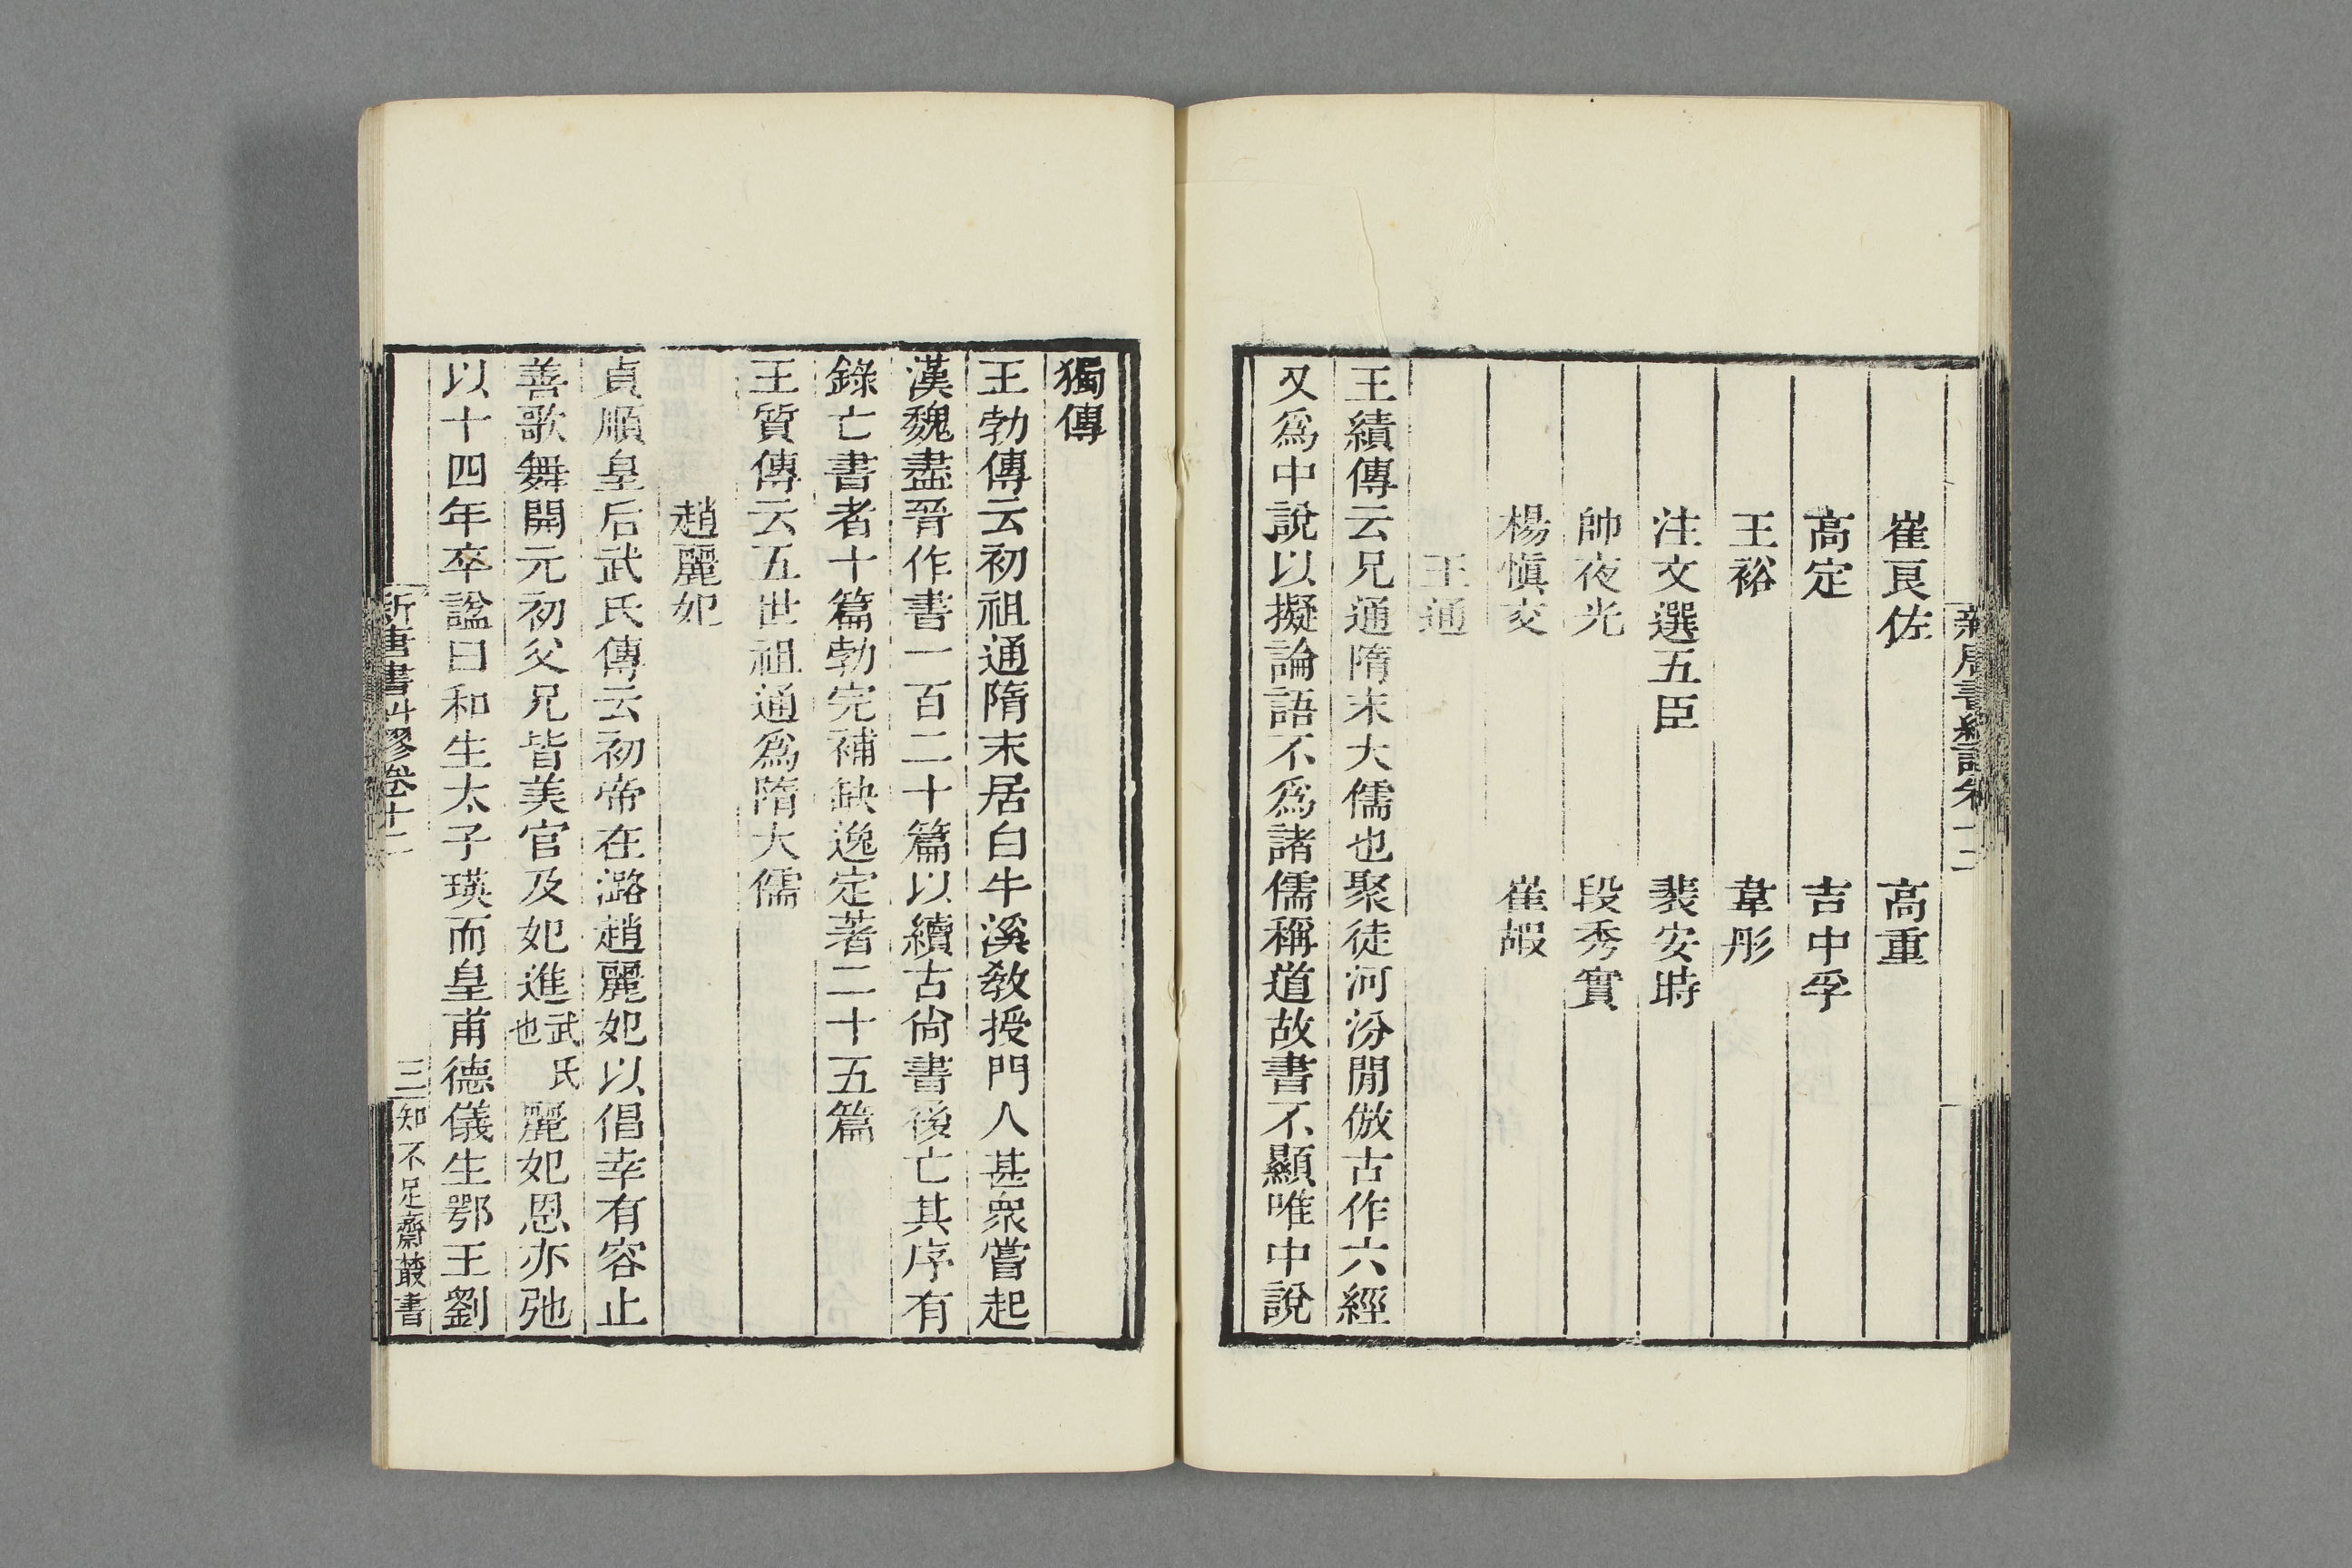 新唐書糾謬卷十二
崔良佐　高重
高定　吉中孚
王裕　韋彤
注文選五臣　裴安時
帥夜光　段秀實
楊愼交　崔嘏
王通
王績傳云兄通隋末大儒也聚徒河汾閒倣古作六經
又爲中說以擬論語不爲諸儒稱道故書不顯唯中說
獨傳
王勃傳云初祖通隋末居白牛溪敎授門人甚衆嘗起
漢魏盡晉作書一百二十篇以續古尙書後亡其序有
錄亡書者十篇勃完補缺逸定著二十五篇
王質傳云五世祖通爲隋大儒
趙麗妃
貞順皇后武氏傳云初帝在潞趙麗妃以倡幸有容止
善歌舞開元初父兄皆美官及妃進武氏也麗妃恩亦弛
以十四年卒諡曰和生太子瑛而皇甫德儀生鄂王劉
新唐書糾謬卷十二
三
知不足齋叢書